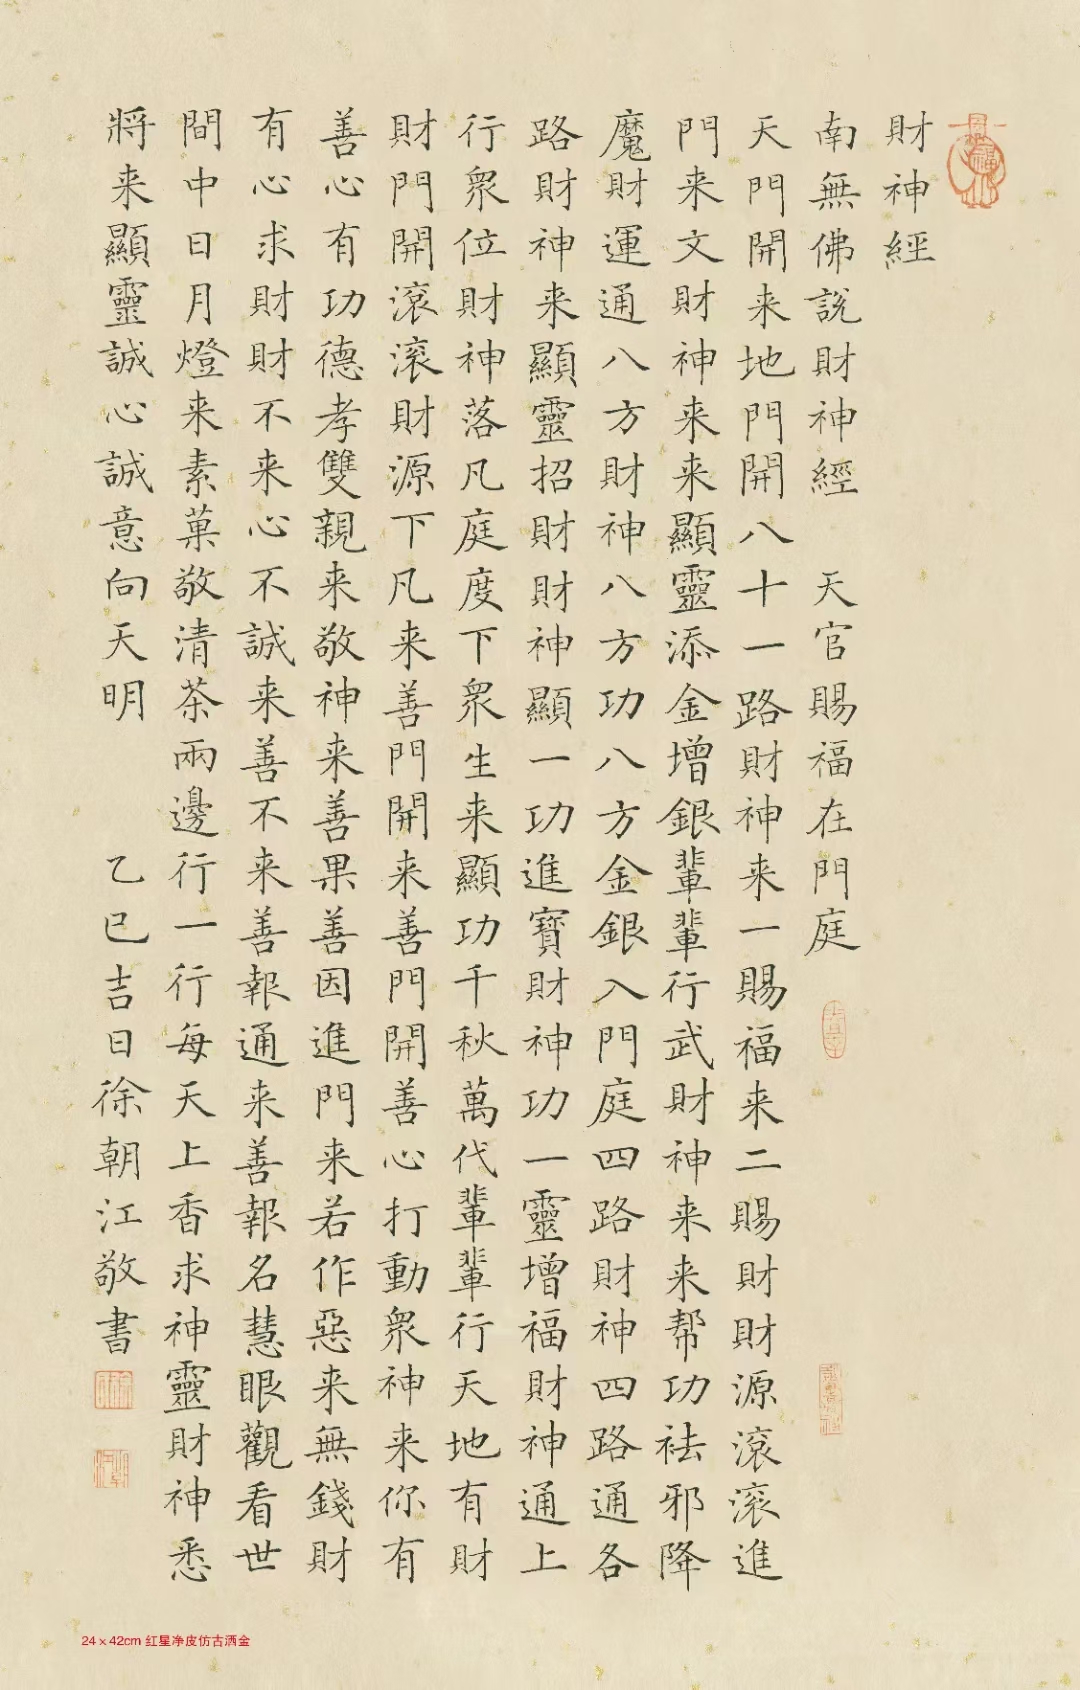 財神經
南無佛說財神經　天官賜福在門庭
天門開来地門開八十一路財神来一賜福来二賜財財源滾滾進
門来文財神来来顯靈添金增銀輩輩行武財神来来帮功祛邪降
魔財運通八方財神八方功八方金銀入門庭四路財神四路通各
路財神来顯靈招財財神顯一功進寶財神功一靈增福財神通上
行眾位財神落凡庭度下眾生来顯功千秋萬代輩輩行天地有財
財門開滾滾財源下凡来善門開来善門開善心打動眾神来你有
善心有功德孝雙親来敬神来善果善因進門来若作惡来無錢財
有心求財財不来心不誠来善不来善報通来善報名慧眼觀看世
間中日月燈来素菓敬清茶兩邊行一行每天上香求神靈財神悉
將来顯靈誠心誠意向天明　乙巳吉日徐朝江敬書
24×42cm 红星净皮仿古洒金